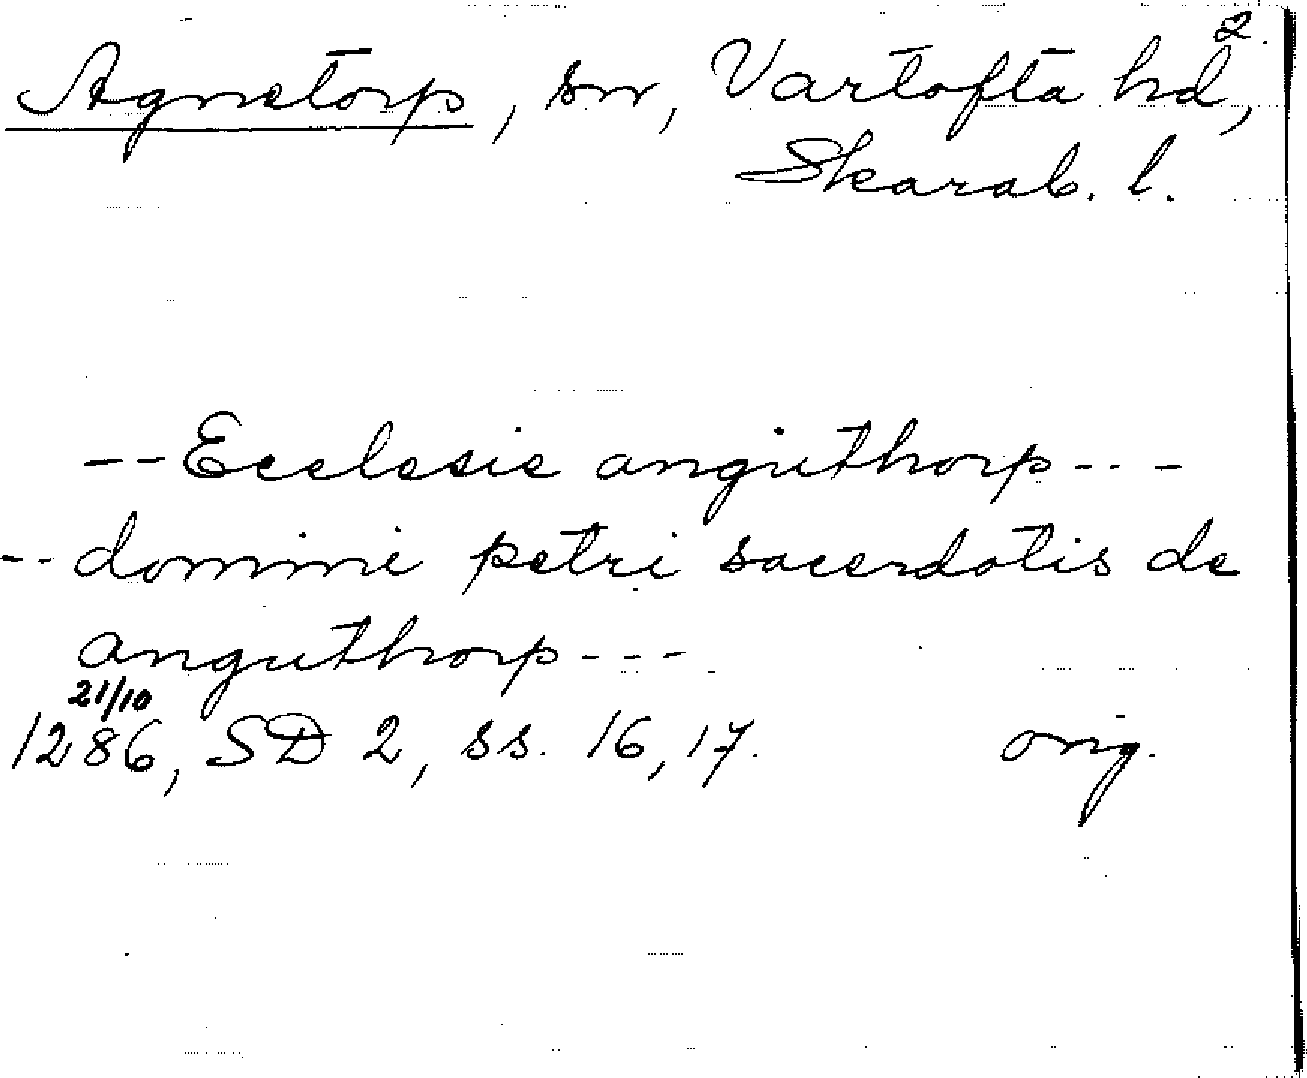 2.
Agnetorp, sn, Vartofta hd,
Skarab. l.
-- Ecclesie anguthorp ---
-- domini petri sacerdotis de
anguthorp ---
21/10
1286, SD 2, ss. 16, 17. orig.